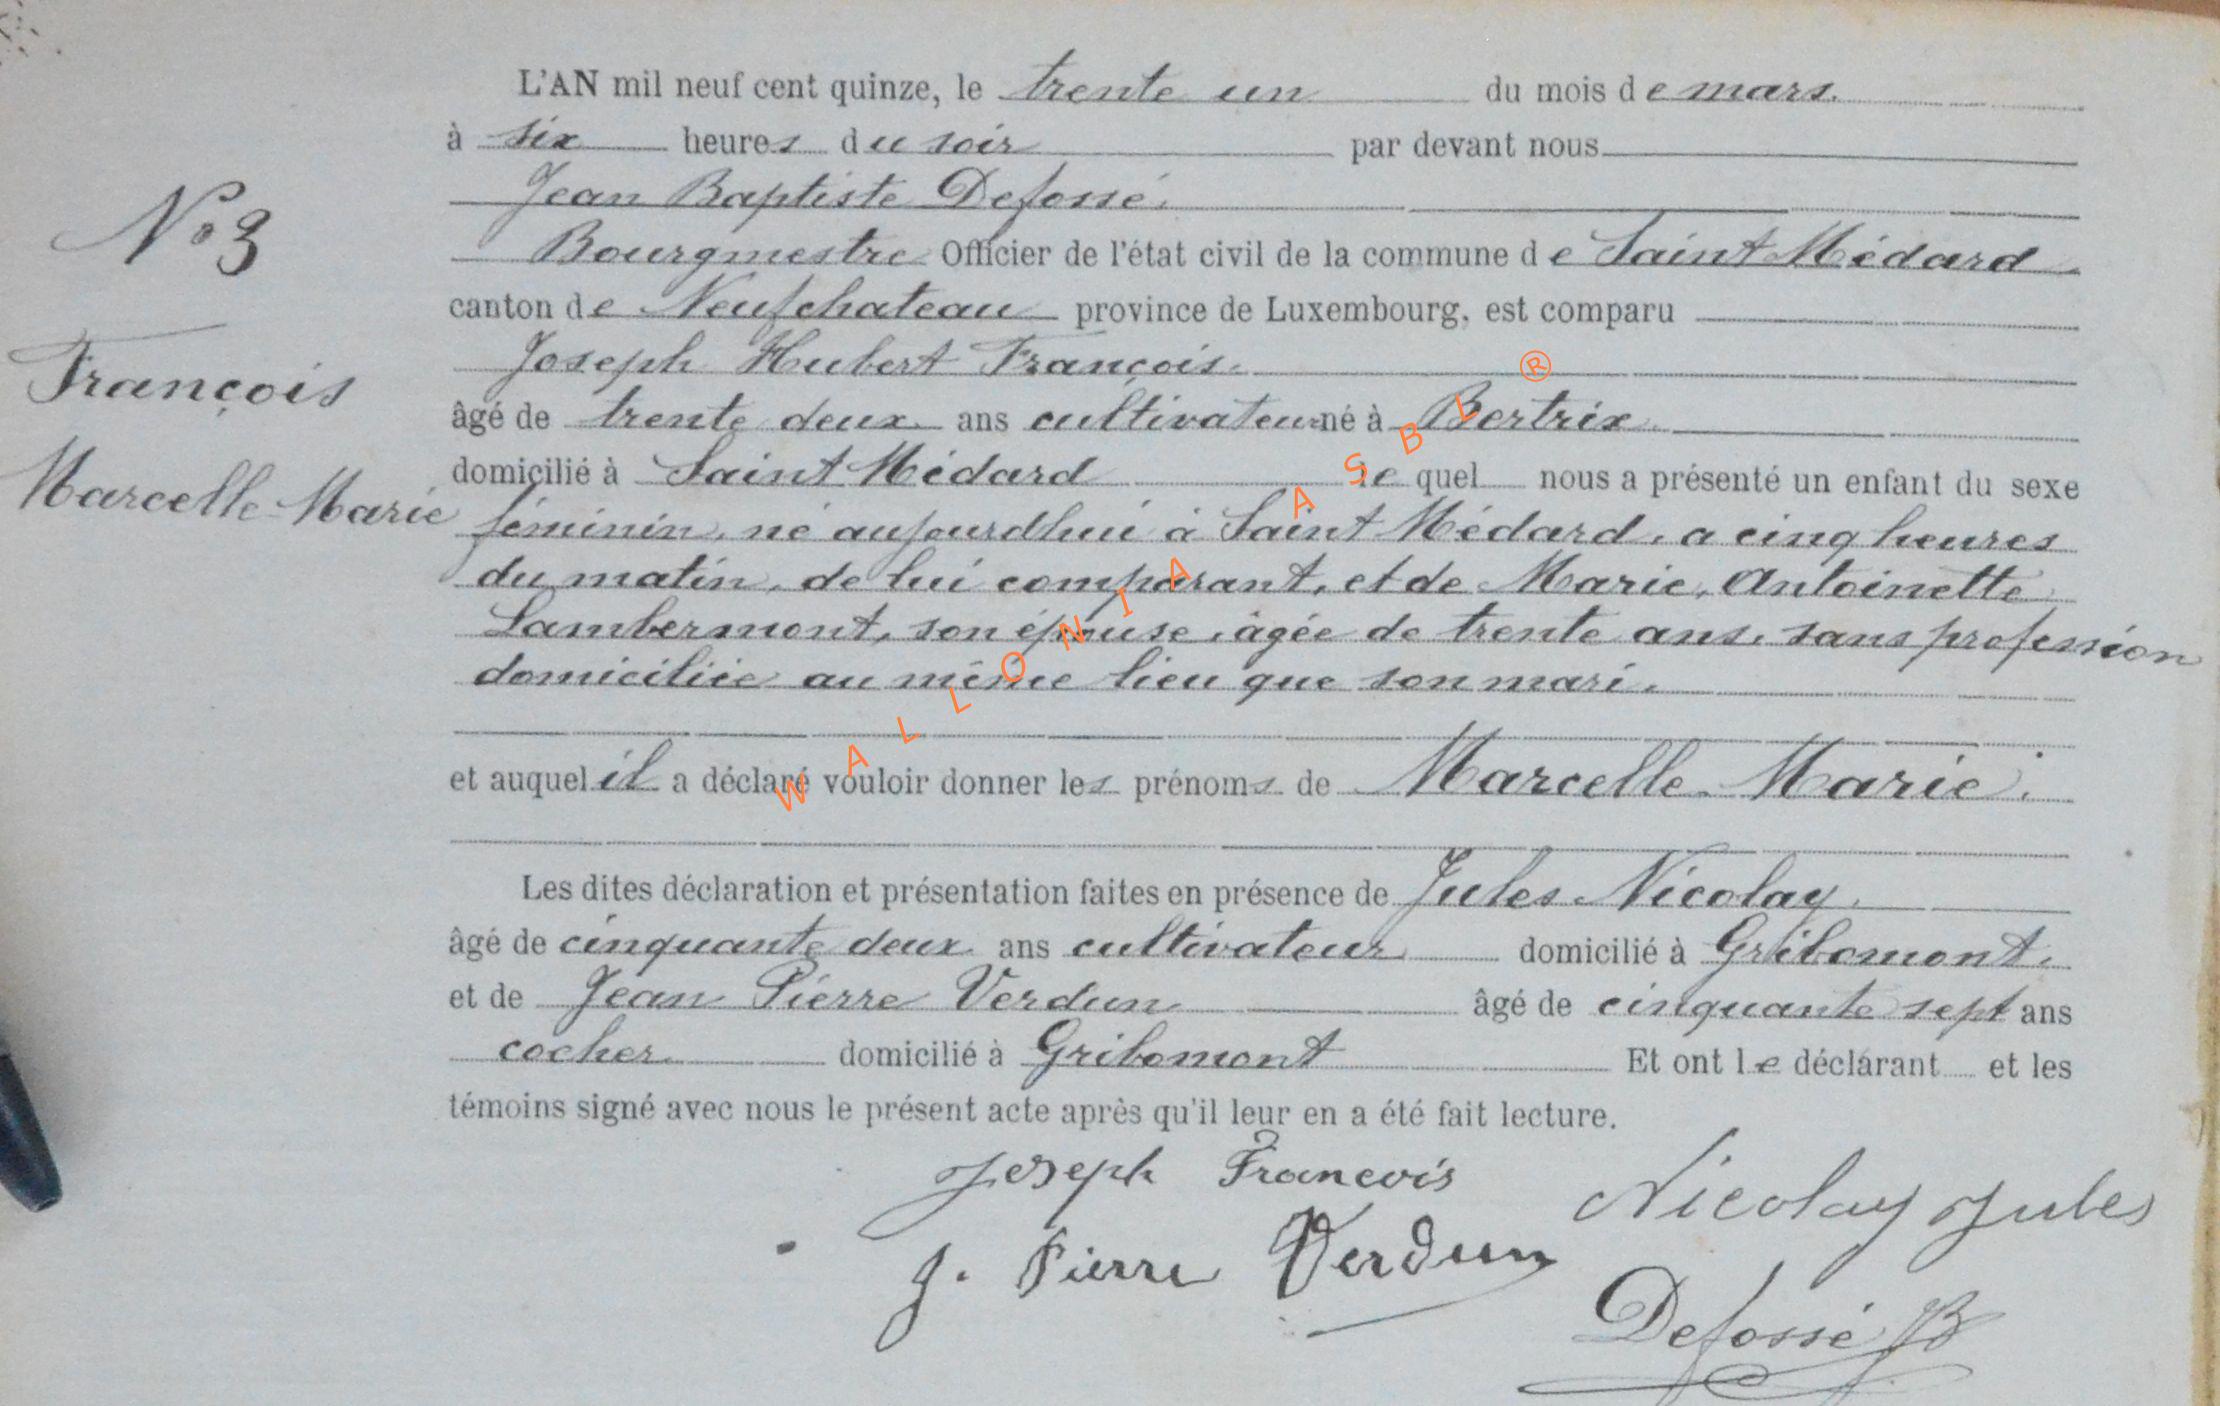 L'AN mil neuf cent quinze, le trente un du mois de mars.
à six heures du soir par devant nous
Jean Baptiste Defossé.
Bourgmestre Officier de l'état civil de la commune de Saint Médard.
canton de Neufchateau province de Luxembourg, est comparu
Joseph Hubert François.
âgé de trente deux ans cultivateur né à Bertrix.
domicilié à Saint Médard le quel nous a présenté un enfant du sexe
féminin, né aujourdhui à Saint Médard, a cinq heures
du matin, de lui comparant, et de Marie, Antoinette
Lambermont, son épouse, âgée de trente ans, sans profession
domiciliée au même lieu que son mari.
et auquel il a déclaré vouloir donner les prénoms de Marcelle Marie.
Les dites déclaration et présentation faites en présence de Jules Nicolay.
âgé de cinquante deux ans cultivateur domicilié à Gribomont.
et de Jean Pierre Verdun âgé de cinquante sept ans
cocher. domicilié à Gribomont Et ont le déclarant et les
témoins signé avec nous le présent acte après qu'il leur en a été fait lecture.
Joseph François
Nicolay Jules
J. Pierre Verdun
Defossé JB
No 3
François
Marcelle-Marie
WALLONIA ASBL ®